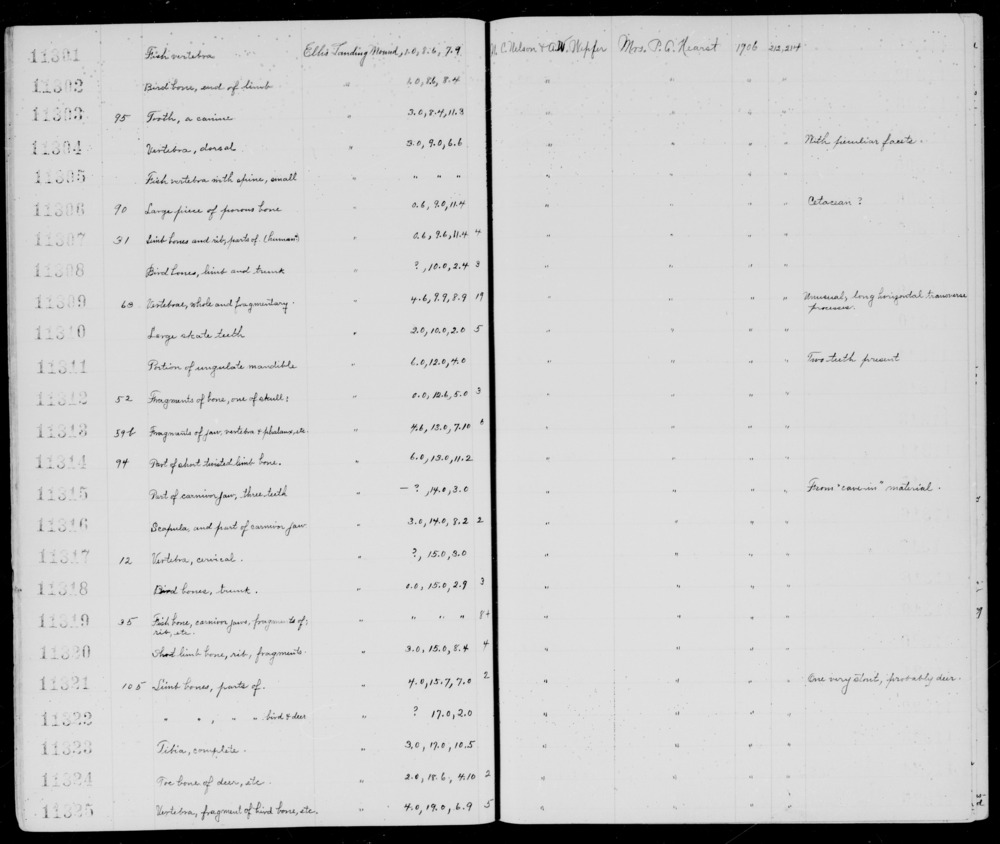 11301 Fish vertebra Ellis Landing Mound, 2.0, 8.6, 7.9 N. C. Nelson & A.W. Wepfer Mrs. P. A. Hearst 1906 213, 214
11302 Bird bone, end of limb " 8.4 " " " "
11303 95 Tooth, a canine " 3.0, 8.4, 11.3 " " " "
11304 Vertebra, dorsal " 3.0, 9.0, 6.6 " " " " With peculiar facets.
11305 Fish vertebra with spine, small " " " " " " " "
11306 90 Large piece of porous bone " 0.6, 9.0, 11.4 " " " " Cetacean ?
11307 31 Limb bones and rib, parts of (human) " 0.6, 9.6, 11.4 4 " " " "
11308 Bird bones, limb and trunk " ?, 10.0, 2.4 3 " " " "
11309 63 Vertebrae, whole and fragmentary. " 4.6, 9.9, 8.9 19 " " " " Unusual, long horizontal transverse
processes.
11310 Large skate teeth " 3.0, 10.0, 2.0 5 " " " "
11311 Portion of ungulate mandible " 6.0, 12.0, 4.0 " " " " Two teeth present
11312 52 Fragments of bone, one of skull; " 0.0, 12.6, 5.0 3 " " " "
11313 Fragments of jaw, vertebra & phalanx, etc. " 4.6, 13.0, 7.10 " " " "
11314 94 Part of short twisted limb bone. " 6.0, 13.0, 11.2 " " " "
11315 Part of carnivor jaw, three teeth " — ?, 14.0, 3.0 " " " " From "cave-in" material.
11316 Scapula, and part of carnivor jaw " 3.0, 14.0, 8.2 2 " " " "
11317 12 Vertebra, cervical. " ?, 15.0, 3.0 " " " "
11318 Bird bones, trunk. " 0.0, 15.0, 2.9 3 " " " "
11319 35 Fish bone, carnivor jaws, fragments of; " " " " 8+ " " " "
rib, etc.
11320 limb bone, rib, fragments. " 3.0, 15.0, 8.4 4 " " " "
11321 105 Limb bones, parts of. " 4.0, 15.7, 7.0 2 " " " " One very stout, probably deer.
11322 " " , " " bird & deer " ? 17.0, 2.0 " " " "
11323 Tibia, complete. " 3.0, 17.0, 10.5 " " " "
11324 Toe bone of deer, etc. " 2.0, 18.6, 4.10 2 " " " "
11325 Vertebra, fragment of bird bone, etc. " 4.0, 19.0, 6.9 5 " " " "